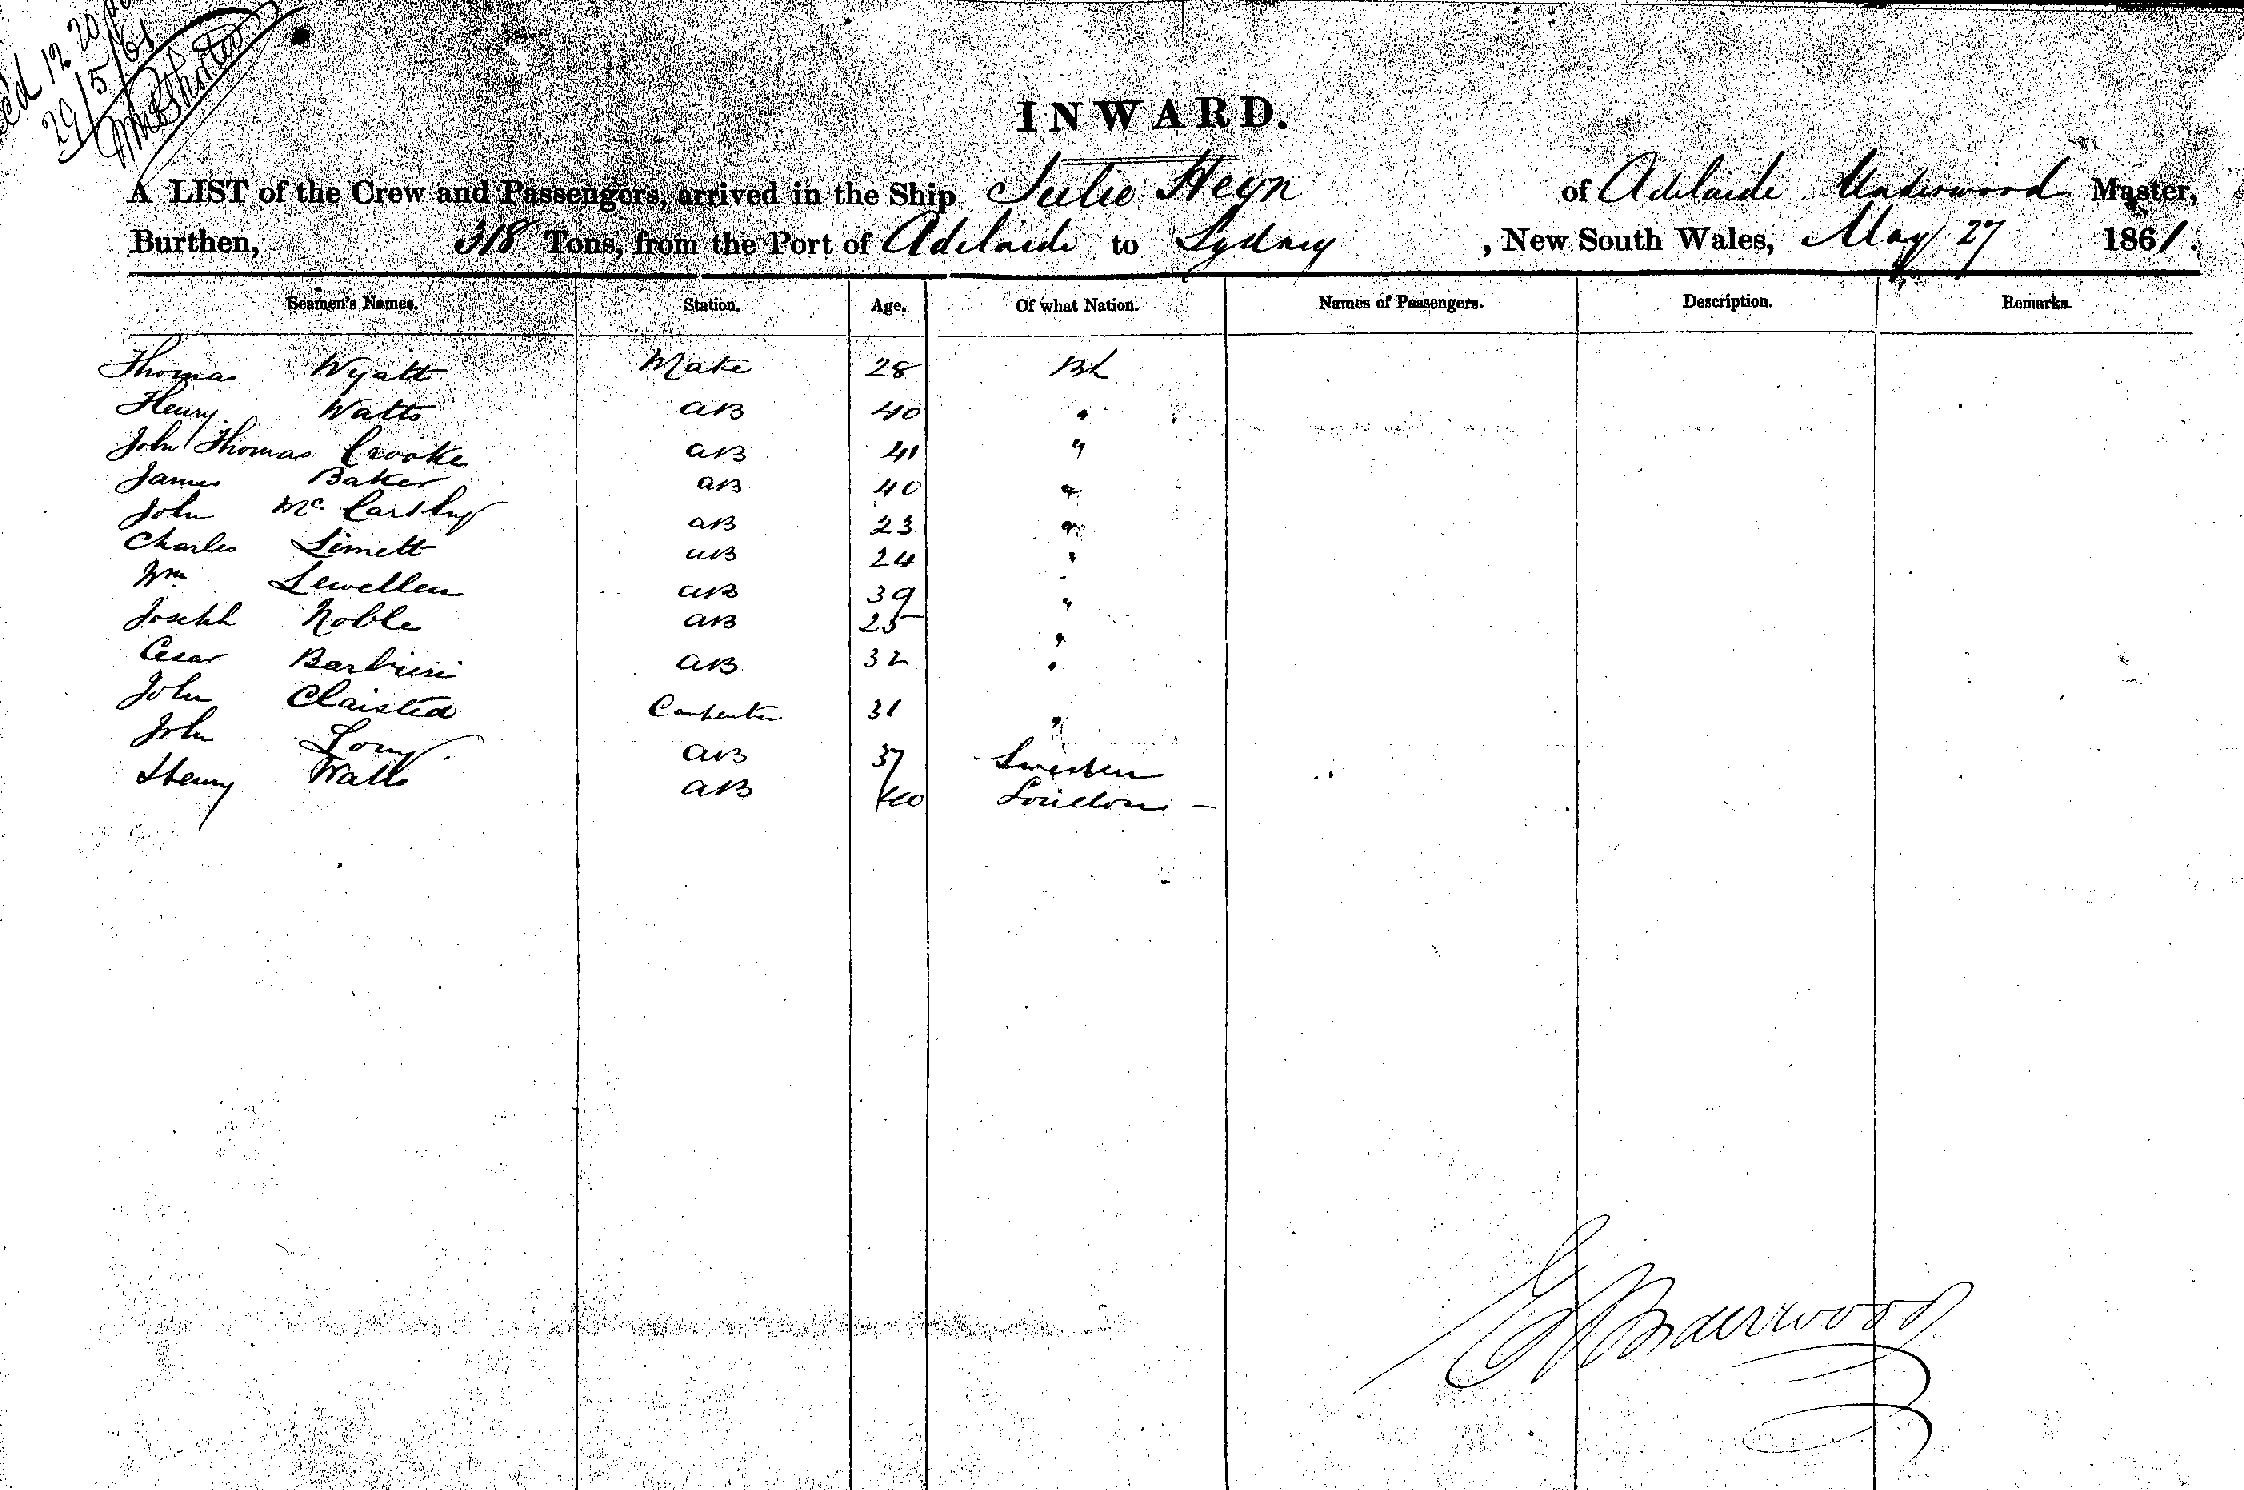 12 20
29/5/61
INWARD.
A LIST of the Crew and Passengers, arrived in the Ship Julie Heyn of Adelaide Underwood Master,
Burthen, 318 Tons, from the Port of Adelaide to Sydney, New South Wales, May 27 1861.
Seamen's Names. Station. Age. Of what Nation. Names of Passengers. Description. Remarks.
Thomas Wyatt Mate 28
Henry Watts AB 40 "
John Thomas Crooke AB 41 "
James Baker AB 40 "
John McCarthy AB 23 "
Charles AB 24 "
Wm Lewellen AB 39 "
Joseph Noble AB 25 "
Cesar Barbieri AB 32 "
John Claisted Carpenter 31 "
John Long AB 37 Sweden
Henry Watts AB 40 London
Underwood